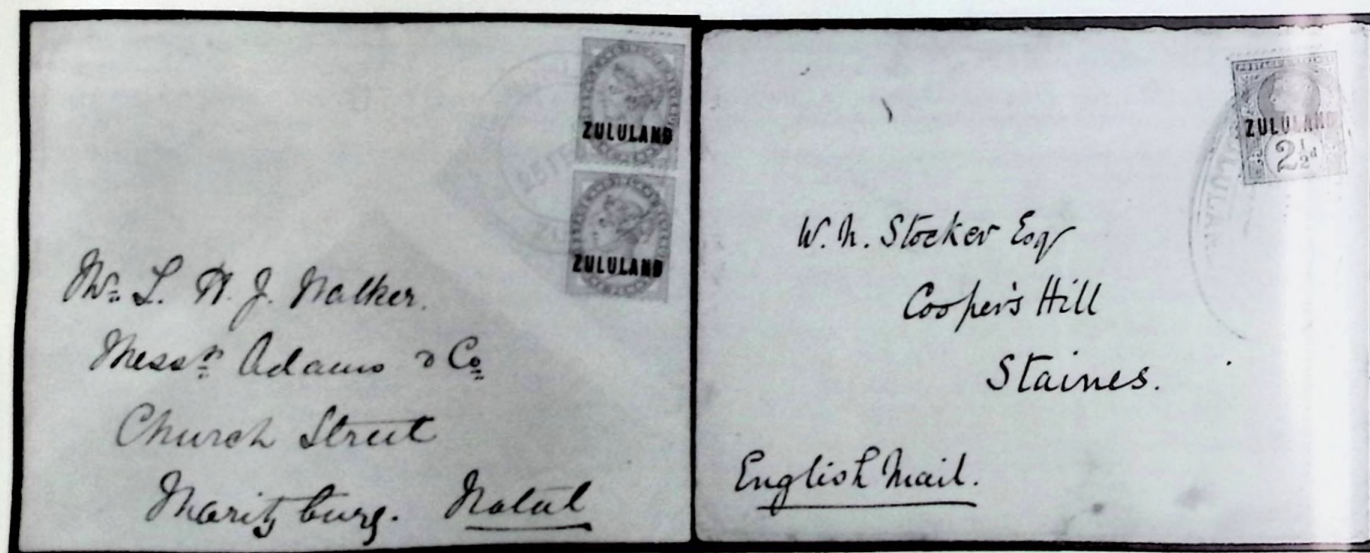 ZULULAND
25 FE
ZULULAND
Mr. L. H. J. Walker.
Messrs. Adams & Co.
Church Street
Maritzburg. Natal
POSTAGE & REVENUE
ZULULAND
2½d
ZULULAN
W. N. Stocker Esqr
Cooper's Hill
Staines.
English Mail.